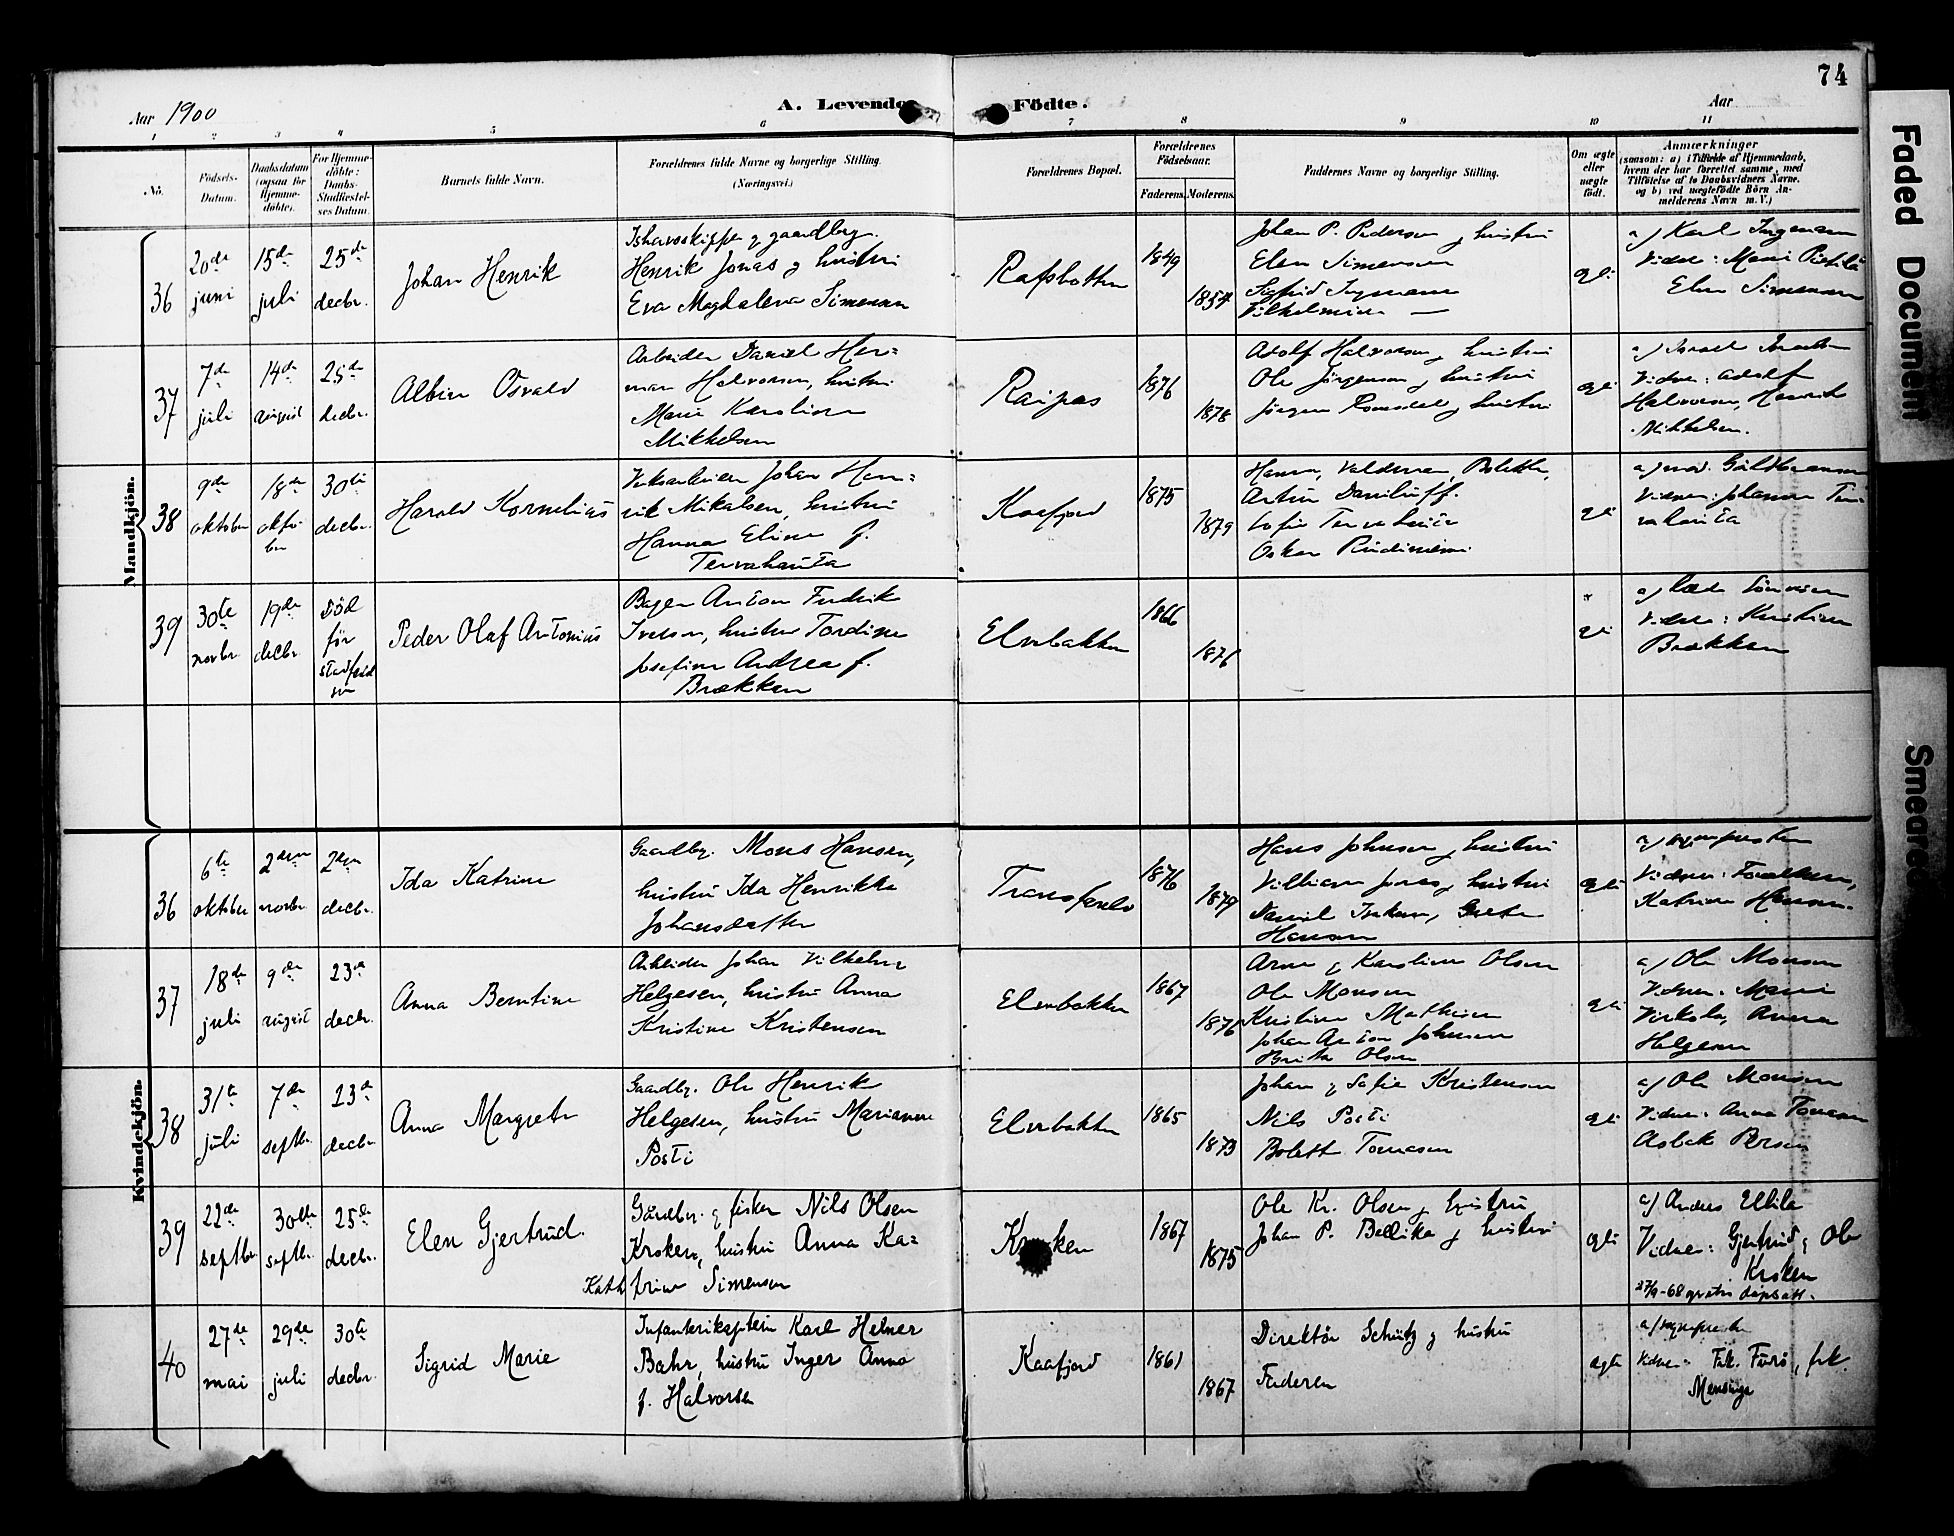 74
Aar 1900
A. Levende Födte.
Aar
1 2 3 4 5 6 7 8 9 10 11
No.
Födsels-Datum.
Daabsdatum (ogsaa for Hjemme-döbte).
For Hjemme-döbte: Daabs-Stadfæstel-ses Datum.
Barnets fulde Navn.
Forældrenes fulde Navne og borgerlige Stilling.
(Næringsvei.)
Forældrenes Bopæl.
Forældrenes Födselsaar.
Faderens. Moderens.
Faddernes Navne og borgerlige Stilling.
Om ægte eller uægte födt.
Anmærkninger
(saasom: a) i Tilfælde af Hjemmedaab,
hvem der har forrettet samme, med
Tilföielse af to Daabsvidners Navne.
og b) ved uægtefödte Börn An-
melderens Navn m. V.)
Mandkjön.
36
20de juni
15de juli
25de decbr.
Johan Henrik
Ishavsskipper g gaardbrg.
Henrik Jonas g hustru
Eva Magdalena Simensen
Rafsbotten
1849
1854
Johan P. Pedersen g hustru
Elen Simensen
Sigfrid Ingmann
Vilhelmine —
a) Karl Ingemann
Vidner: Marie Pietilä
Elen Simensen
37
7de juli
14de august
25de decbr.
Albin Osvald
Arbeider Daniel Her=
man Halvorsen, hustru
Marie Karoline
Mikkelsen
Raipas
1876
1878
Adolf Halvorsen g hustru
Ole Jörgensen g hustru
Jörgen Romsdal g hustru
Vidner: Adolf
Halvorsen, Henrik
Mikkelsen.
38
9de oktober
18de oktober
30te decbr.
Harald Kornelius
Johan Hen=
rik Mikalsen, hustru
Hanna Eline f.
Tervahauta
Kaafjord
1875
1879
Hanna, Valdemar, Bolette,
Artur Daniluff.
Sofie Tervahauta
Oskar
Vidner: Johanna Ter-
vahauta
39
30te novbr.
19de decbr.
död för stadfæstelsen
Peder Olaf Antonius
Bager Anton Fredrik
Iversen, hustru Tordine
Josefine Andrea f.
Brækken
Elvebakken
1866
1876
Vidner: Kristine
Brækken
Kvindekjön.
36
6te oktober
2den novbr.
2den decbr.
Ida Katrine
Gaardbr. Mons Hansen,
hustru Ida Henrikke
Johansdatter
Transfarelv
1876
1879
Hans Johnsen g hustru
Villiam Jonas g hustru
Daniel Isaksen, Grete
Hansen
a) sognepresten
Katrine Hansen.
37
18de juli
9de august
23de decbr.
Anna Berntine
Arbeider Johan Vilhelm
Helgesen, hustru Anna
Kristine Kristensen
Elvebakken
1867
1876
Arne g Karoline Olsen
Ole Monsen
Kristine Mathisen
Johan Anton Johnsen
Brita Olsen
ægte
a) Ole Monsen
Vidner: Marie
Virkola, Anna
Helgesen
38
31te juli
7de septbr.
23de decbr
Anna Margrete
Gaardbr. Ole Henrik
Helgesen, hustru Marianne
Posti
Elvebakken
1865
1873
Johan g Sofie Kristensen
Nils Posti
Bolett Tomasen
ægte
a) Ole Monsen
Vidner: Anna Tomasen
Aslak Persen
39
22de septbr
30te septbr.
25de decbr.
Elen Gjertrud.
Gårdbr. g fisker Nils Olsen
Kroken, hustru Anna Ka=
Kath trine Simensen
Kroken
1867
1875
Ole Kr. Olsen g hustru
Johan P. Bellika g hustru
ægte
a) Anders Utsila
Vidner: Gjertrud g Ole
Kroken
27/9-68 gratis dåpsatt.
40
27de mai
29de juli
30te decbr.
Sigrid Marie
Infanterikaptein Karl Helmer
Bahr, hustru Inger Anna
f. Halvorsen
Kaafjord
1861
1867
Direktör Schütz g hustru
Faderen
ægte
a) sognepresten
Faded Document
Smeared